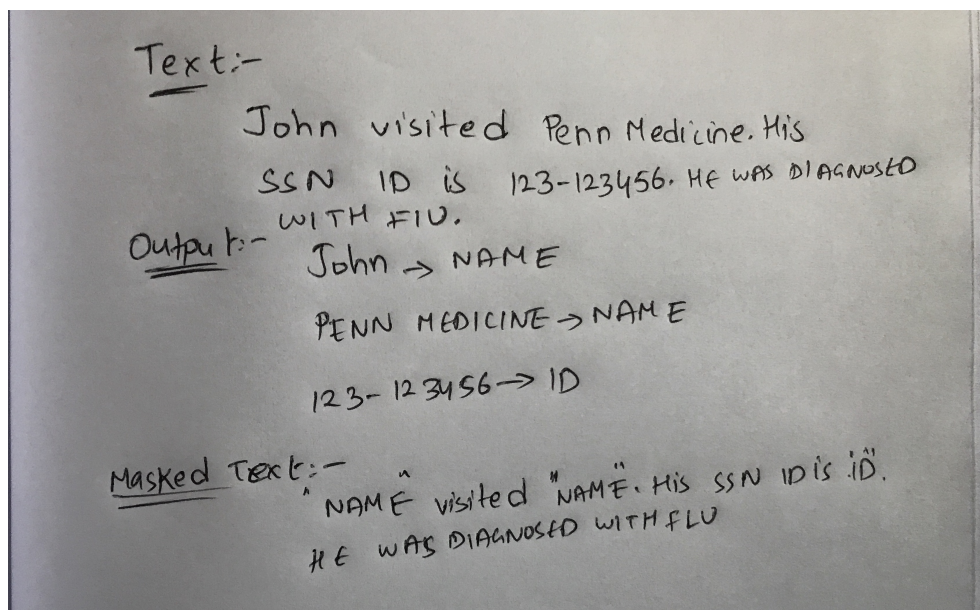 Text:-
John visited Penn Medicine. His
SSN ID is 123-123456. HE WAS DIAGNOSED
WITH FIU.
Output:-
John → NAME
PENN MEDICINE → NAME
123-123456 → ID
Masked Text:-
"NAME" visited "NAME". His SSN ID is "ID".
HE WAS DIAGNOSED WITH FLU